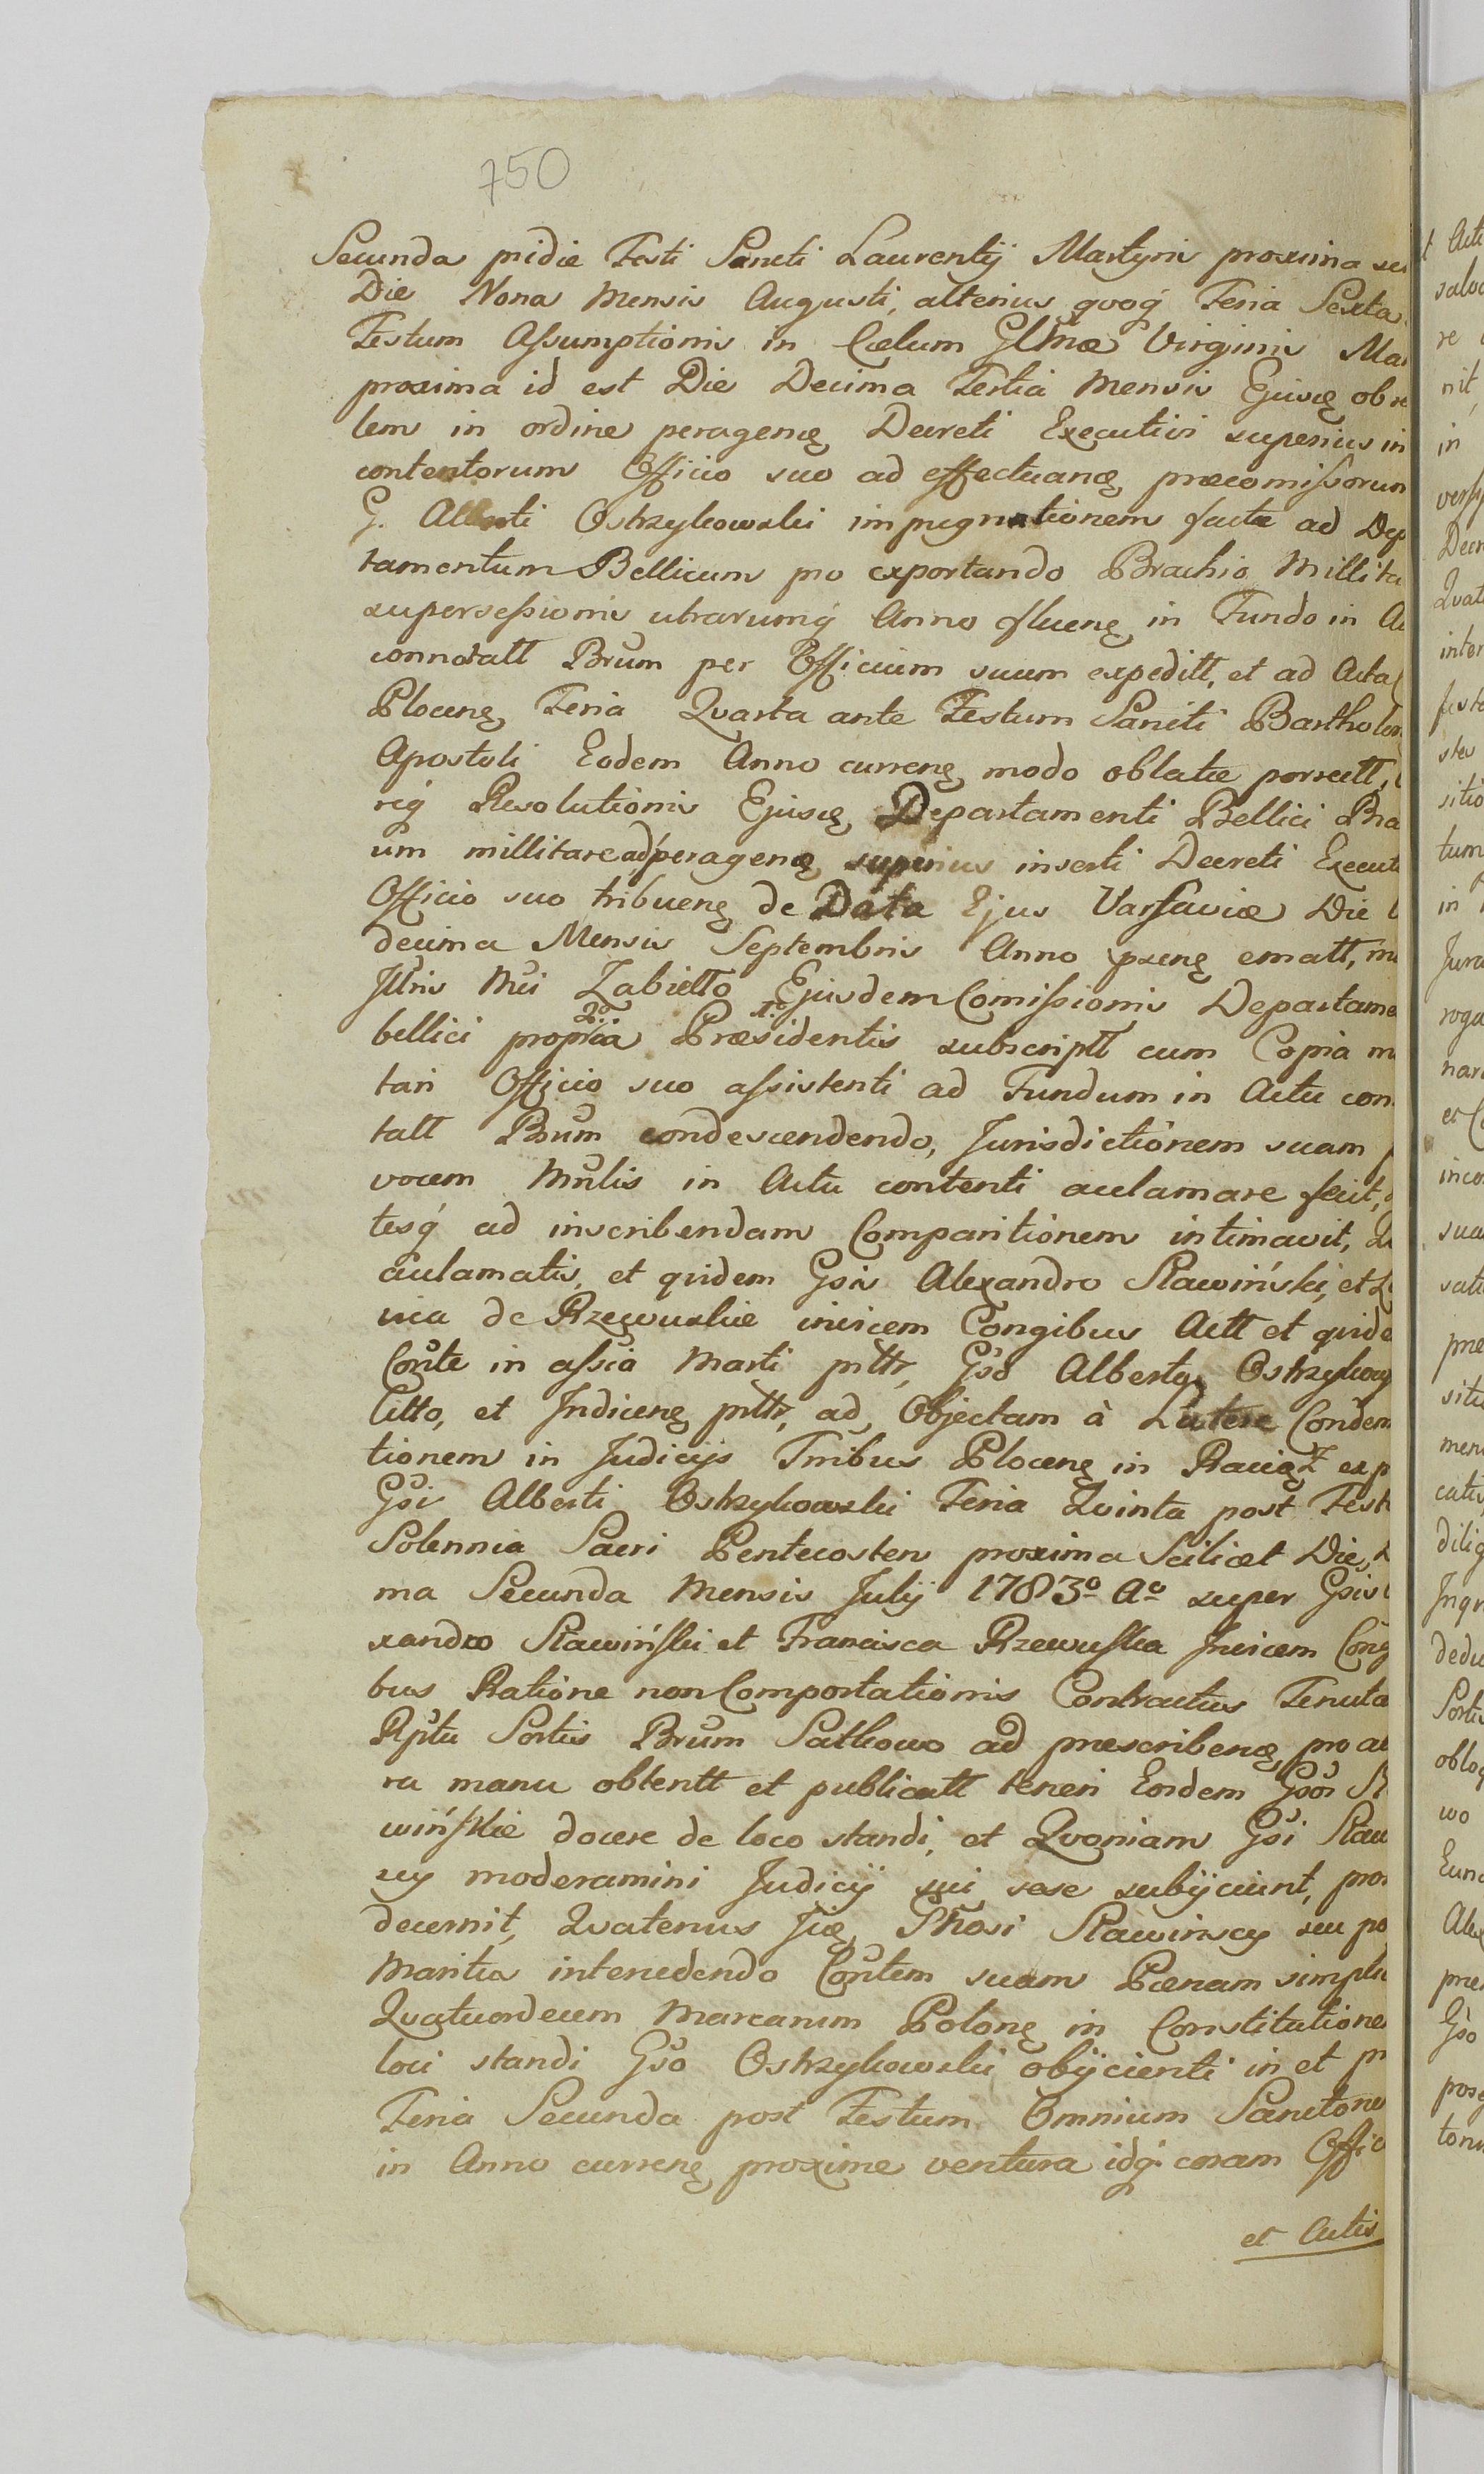 750
Secunda pridie Festi Sancti Laurentij Martyris proxima seu
Die Nona Mensis Augusti, alterius qvoq́ Feria Sexta
Festum Assumptionis in Cælum Glmæ Virginis Ma
proxima id est Die Decima Tertia Mensis Ejusdę ob
lem in ordine peragenę Decreti Executivi superius in
contentorum Officio suo ad effectuanę præcomissorum
G. Alberti Ostrzykowski impugnationem factæ ad Dep
tamentum Bellicum pro exportando Brachio Millita
supersessionis utrarumq́ Anno fluenę in Fundo in A
connotatt Brum per Officium suum expeditt, et ad Acta
Plocenę Feria Qvarta ante Festum Sancti Bartholom
Apostoli Eodem Anno currenę modo oblatæ porrectt,
riq́ Resolutionis Ejusdę Departamenti Bellici Bra
um millitare ad peragenę superius inserti Decreti Execut
Officio suo tribuenę de Data Ejus Varsaviæ Die
decima Mensis Septembris Anno prænę ematt, m
Jllris Mci Zabiełło Ejusdem Comissionis Departame
bellici propria 2do Præsidentis 1o subscriptt cum Copia m
tari Officio suo assistenti ad Fundum in Actu con
tatt Brum condescendendo, Jurisdictionem suam p
vocem Mnlis in Actu contenti acclamare fecit,
tesq́ ad inscribendam Comparitionem intimavit,
acclamatis, et qvidem Gsis Alexandro Sławiński, et
cica de Rzewuskie invicem Congibus Actt et qvide
Conte in assia Marti pntt, Gso Alberto Ostrzykow
Citto, et Indicenę pntt, ad Objectam à Latere Condem
tionem in Judicijs Tribus Plocenę in Raciąż exp
Gsi Alberti Ostrzykowski Feria Qvinta post Fest
Solennia Sacri Pentecosten proxima Scilicet Die
ma Secunda Mensis Julij 1783o Ao super Gsis
xandro Sławiński et Francisca Rzewuska Jnvicem Cong
bus Ratione non Comportationis Contractus Tenuta
Rptu Sortis Brum Sathowo ad præscribenę pro al
ra manu obtentt et publicatt teneri Eosdem Gsos S
wińskie docere de loco standi, et Qvoniam Gsi Sław
scy moderamini Judicij sui sese subijciunt, pro
decernit, Qvatenus Jidę Gnosi Sławinscy seu po
Maritus intercedendo Contem suam Pœnam simpli
Qvatuordecem Marcarum Polonę in Constitutione
loci standi Gso Ostrzykowski obijcienti in et p
Feria Secunda post Festum Omnium Sanctoru
in Anno currenę proxime ventura idq́ coram Offic
et Actis